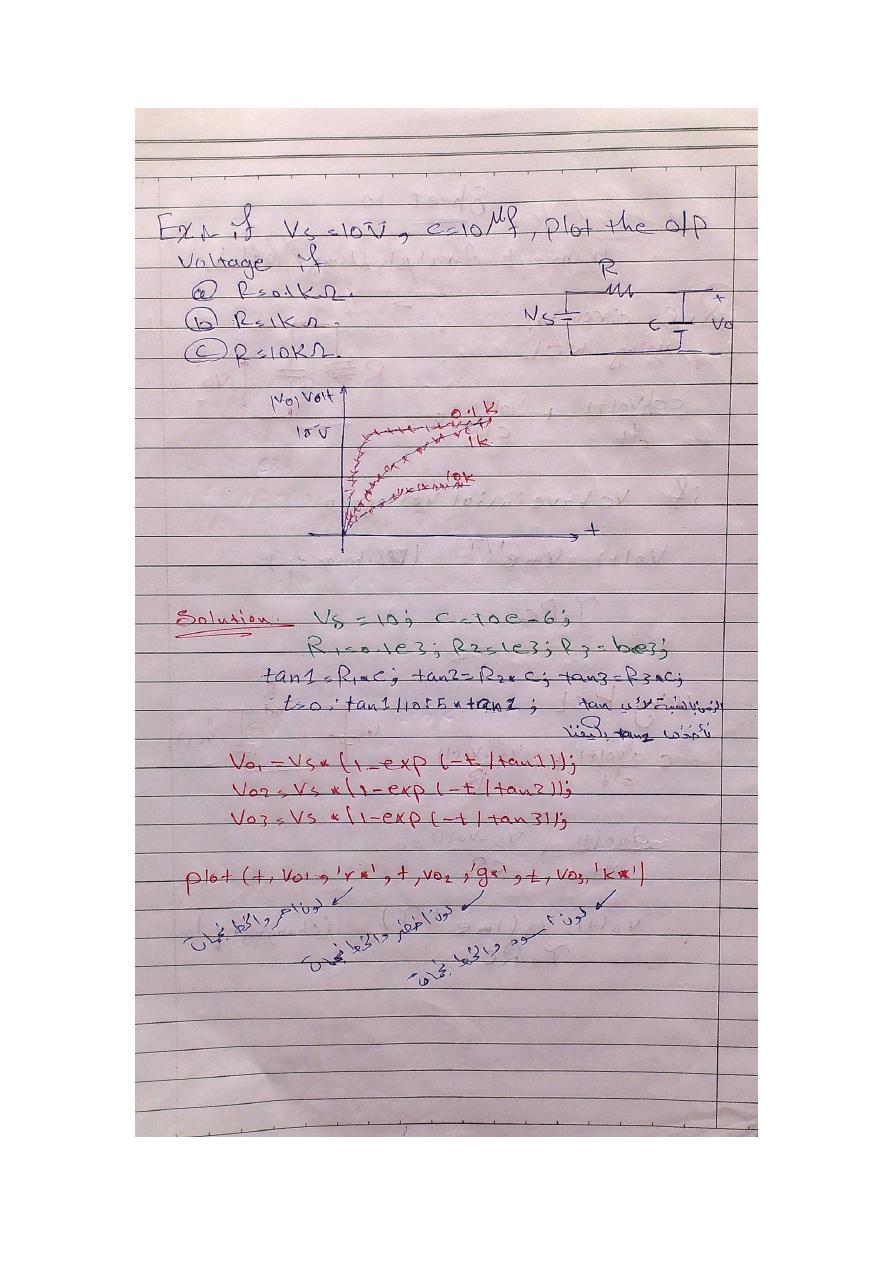 Ex: if Vs = 10V, C=10 μf, plot the o/p
Voltage if
ⓐ R=0.1KΩ.
ⓑ R=1KΩ.
ⓒ R=10KΩ.
R
Vs
C
+
Vo
|Vo| Volt
10V
0.1k
1k
10k
t
Solution. Vs = 10; C=10e-6;
R1=0.1e3; R2=1e3; R3= be3;
tan1=R1*C; tan2=R2*C; tan3=R3*C;
t=0:tan1/10:5*tan2;
الزمن بالنسبة لأي tan
نأخذها tan2
Vo1 = Vs*(1-exp(-t/tan1));
Vo2 = Vs*(1-exp(-t/tan2));
Vo3 = Vs*(1-exp(-t/tan3));
plot(t,Vo1,'r*',t,vo2,'g*',t,Vo3,'k*')
لون احمر والخط نجمات
لون اخضر والخط نجمات
لون اسود والخط نجمات